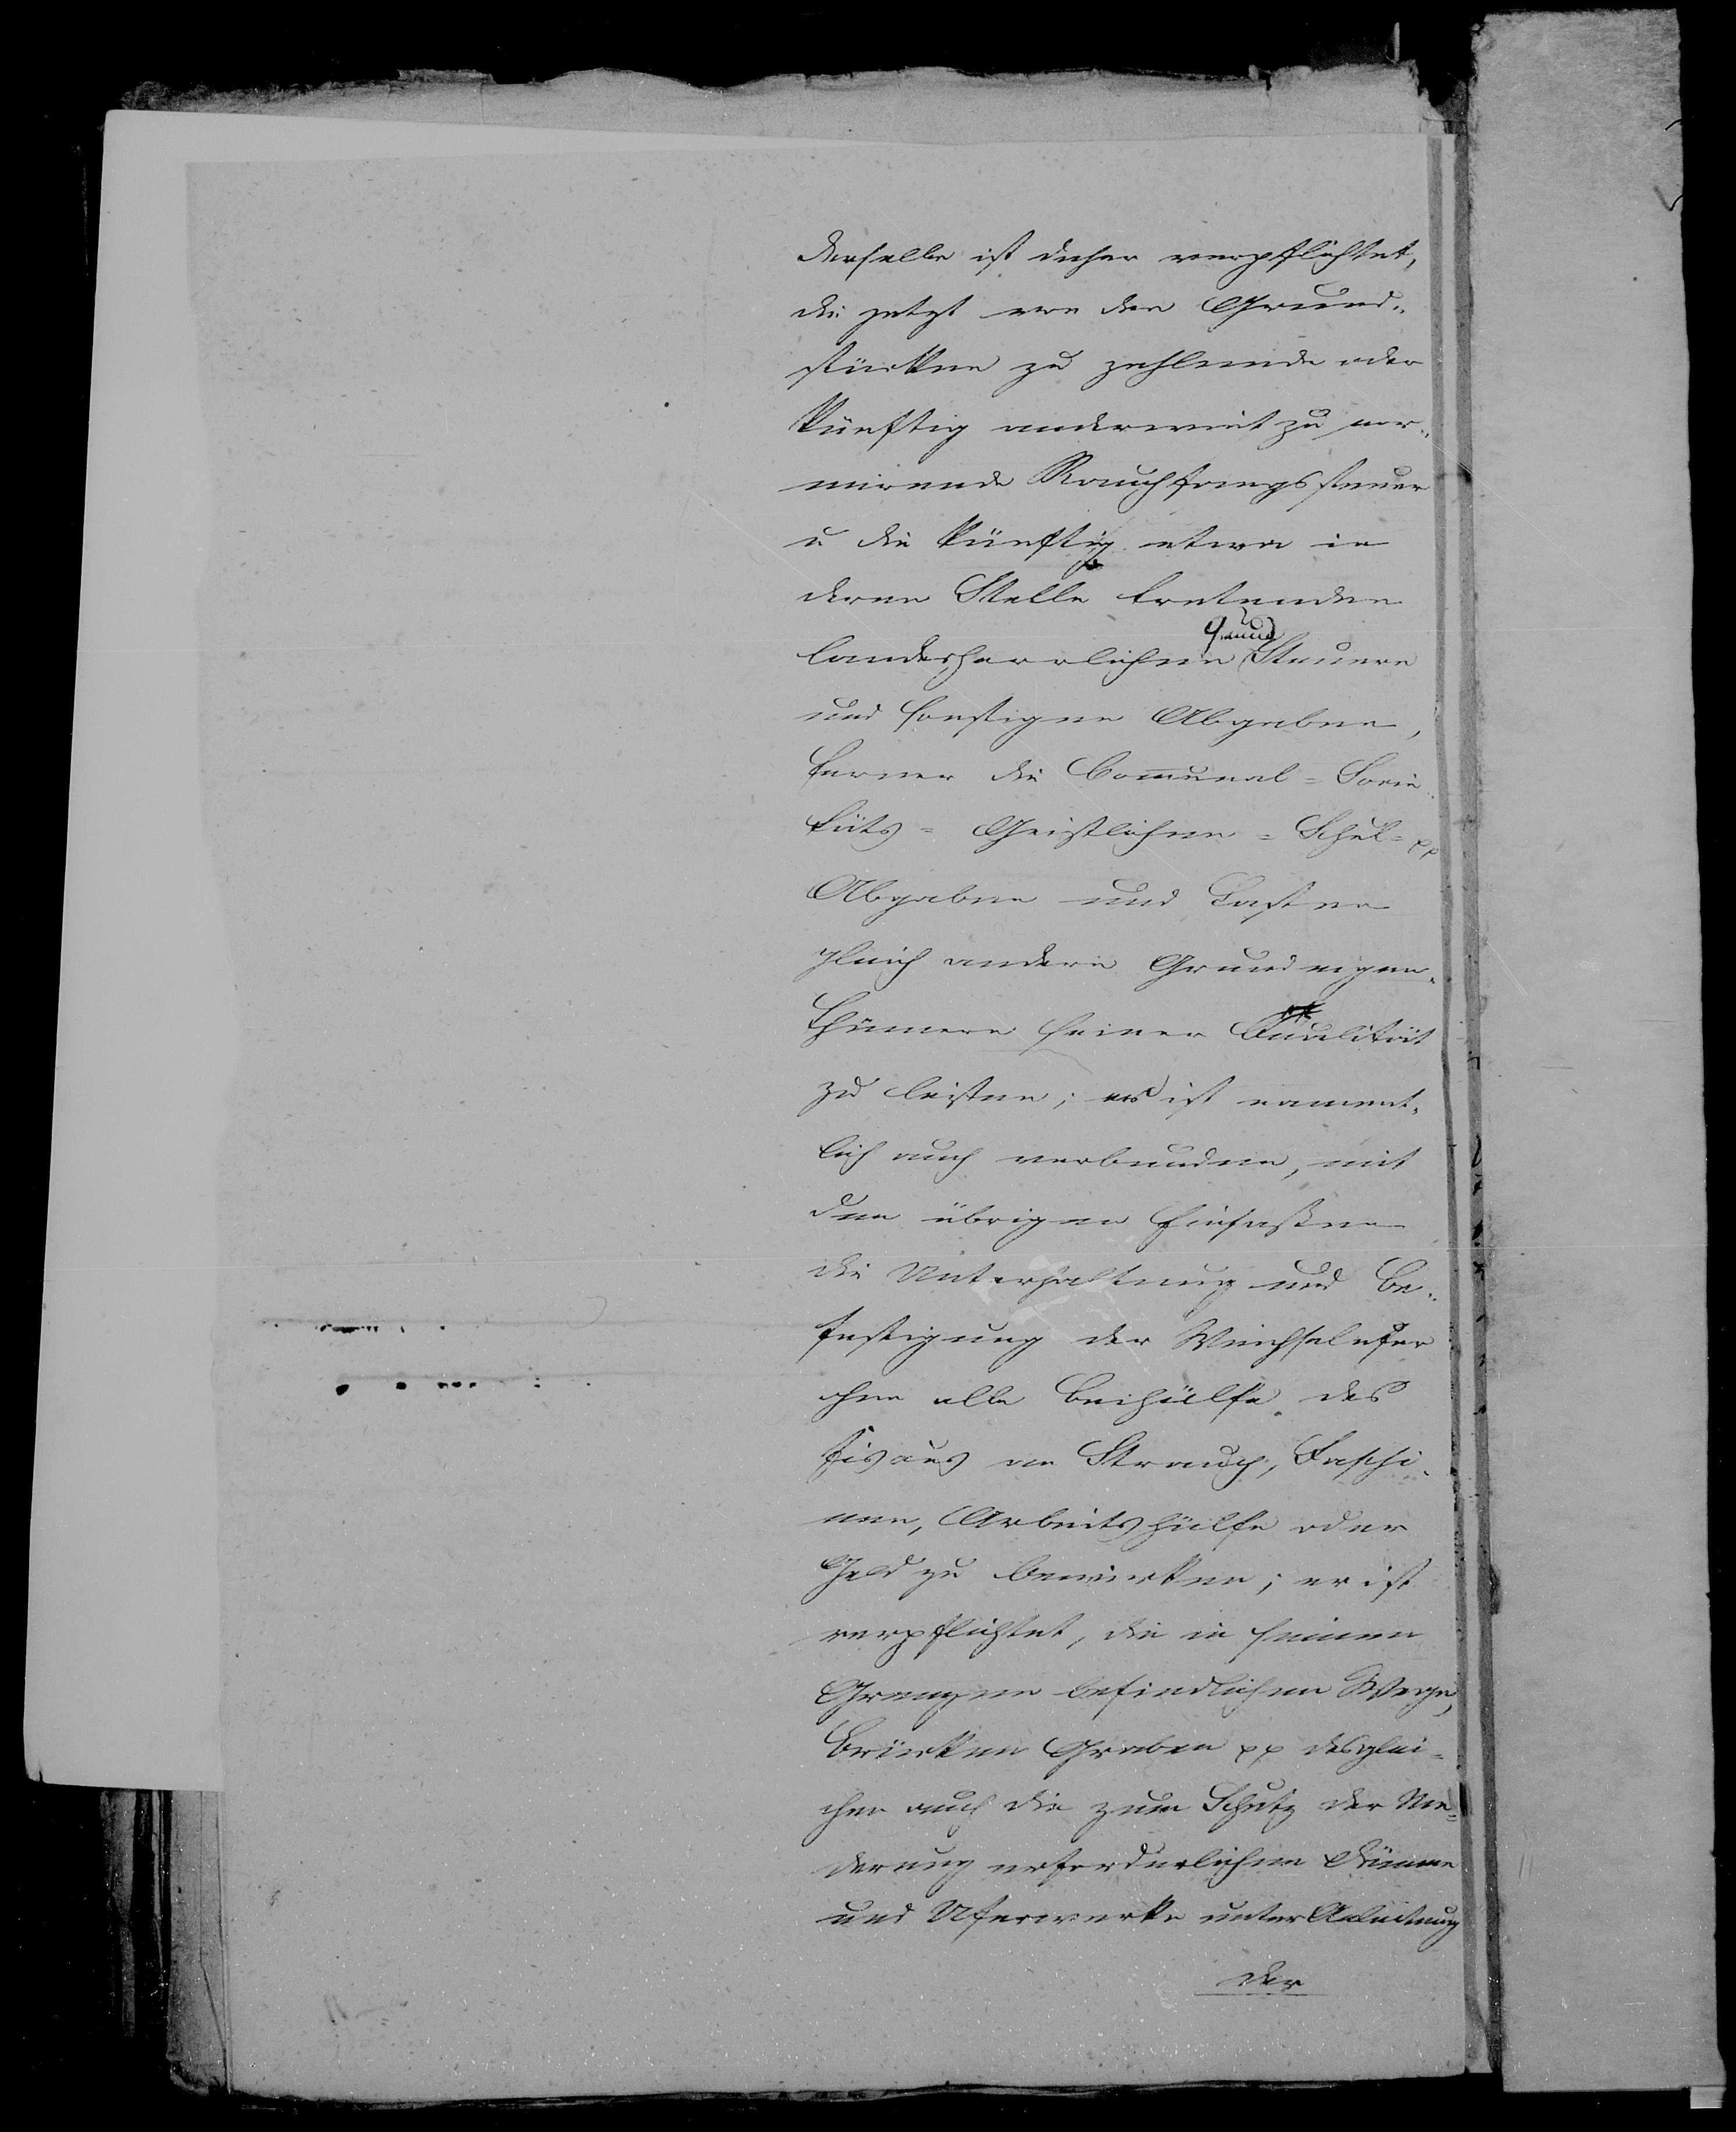 derselbe ist daher verpflichtet,
die jetzt von den Grund„
stücken zu zahlende oder
künftig anderweit zu nor„
mirende Rauchfangssteuer
u die künftig etwa in
deren Stelle tretenden
Grund
landesherrlichen Steuern
und sonstigen Abgaben,
ferner die Communal = Socie„
täts = Geistlichen = Schul= pp
Abgaben und Lasten
gleich andern Grundeigen„
thümern seiner Qualität
zu leisten; er ist nament„
lich auch verbunden, mit
den übrigen Einsaßen
die Unterhaltung und Be„
festigung der Weichselufer
ohne alle Beihülfe des
Fiscus an Strauch, Faschi„
nen, Arbeitshülfe oder
Geld zu bewirken; er ist
verpflichtet, die in seinen
Grenzen befindlichen Wege,
Brücken Graben pp desglei„
chen auch die zum Schutz der Nie„
derung erforderlichen Dämme
und Uferwerke unter Anleitung
der